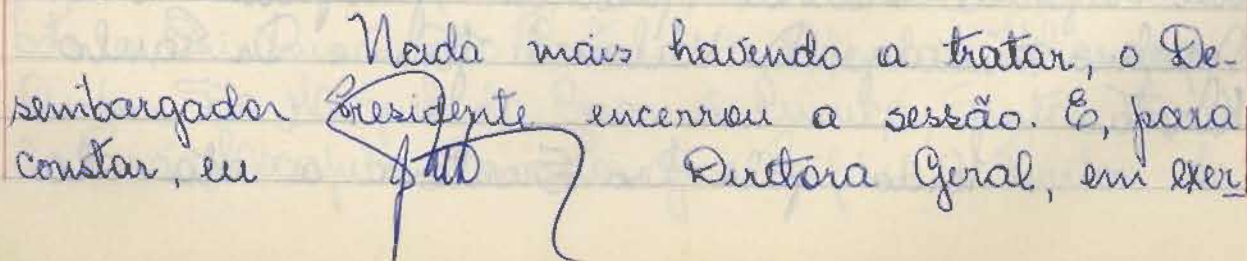 Nada mais havendo a tratar, o De-
sembargador Presidente encerrou a sessão. E, para
constar, eu Diretora Geral, em exer